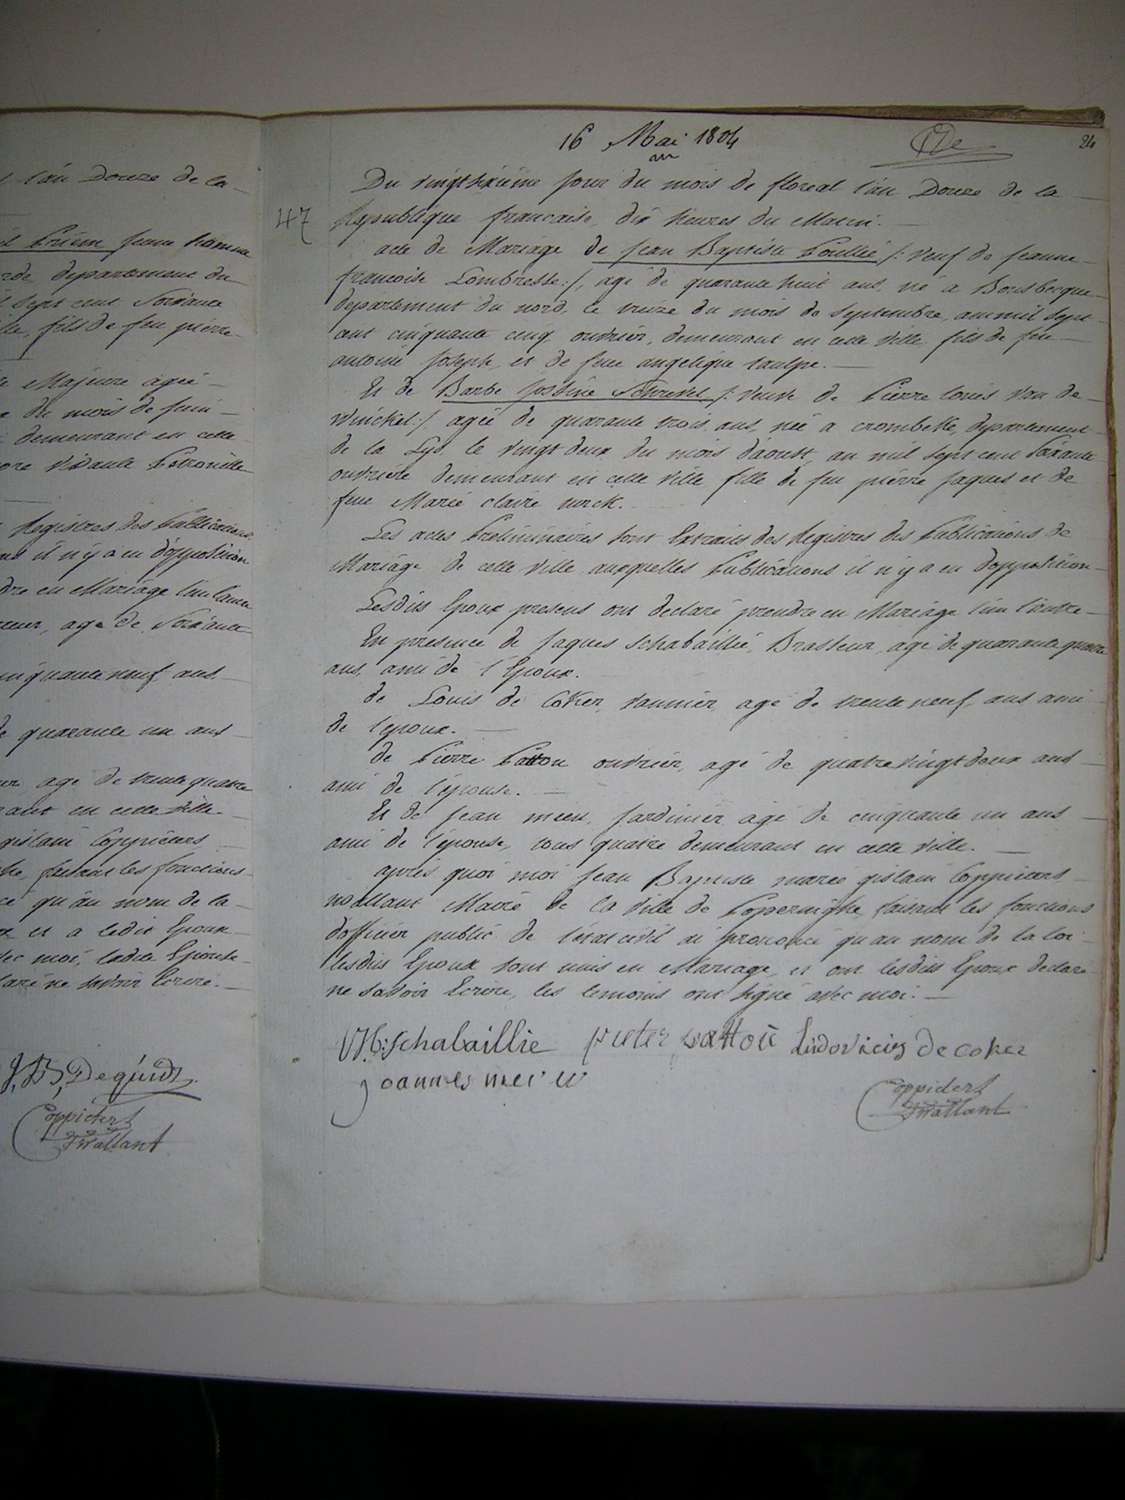 l'an Douze de la
Prien jeune homme
departement du
sept cent Soixante
fils de feu pierre
Majeure agée
du mois de juin
demeurant en cette
Registres des Publications
il n'y a eu d'opposition
en Mariage l'un l'autre
agé de Soixante
cinquante neuf ans
quarante un ans
agé de trente quatre
en cette ville
gislain Coppieters
faisant les fonctions
qu'au nom de la
et a ledit Epoux
moi, ladite Epouse
ne savoir Ecrire.
J. B. De guidt
Coppieters
T'Wallant
16 Mai 1804
24
an
Du vingt sixième jour du mois de floreal l'an Douze de la
47
Republique francaise, dix heures du Matin.
acte de Mariage de Jean Baptiste /: veuf de Jeanne
francoise Lombrette :/, agé de quarante huit ans, né a Bousbecque
departement du nord, le treize du mois de Septembre, an mil sept
cent cinquante cinq ouvrier, demeurant en cette ville, fils de feu
antoine Joseph, et de feue angelique
Et de Barbe Josephine /: veuve de Pierre louis Van de
Winckel :/ agée de quarante trois ans, née a crombeke, departement
de la Lys, le vingt deux du mois d'aoust an mil sept cent Soixante
ouvriere demeurant en cette ville fille de feu pierre Jaques et de
feue Marie claire
Les actes Preliminaires sont Extraits des Registres des Publications de
Mariage de cette ville auxquelles Publications il n'y a eu d'opposition
Lesdits Epoux presens ont declaré prendre en Mariage l'un l'autre
En presence de Jaques Schabaillie, Brasseur, agé de quarante quatre
ans, ami de l'Epoux.
de Louis de Coker, vannier agé de trente neuf ans ami
de l'epoux.
de Pierre Patton ouvrier, agé de quatre vingt deux ans
ami de l'épouse.
Et de Jean meeu, Jardinier agé de cinquante un ans
ami de l'épouse, tous quatre demeurant en cette ville.
après quoi moi Jean Baptiste marie gislain Coppieters
Maire de la ville de Poperinghe, faisant les fonctions
d'officier public de l'etat civil ai prononcé qu'au nom de la loi
lesdits Epoux sont unis en Mariage, et ont lesdits Epoux declaré
ne Savoir Ecrire, les temoins ont signé avec moi.
Schabaillie pieter pattou Ludovicus de coker
joannes
Coppieters
T'Wallant